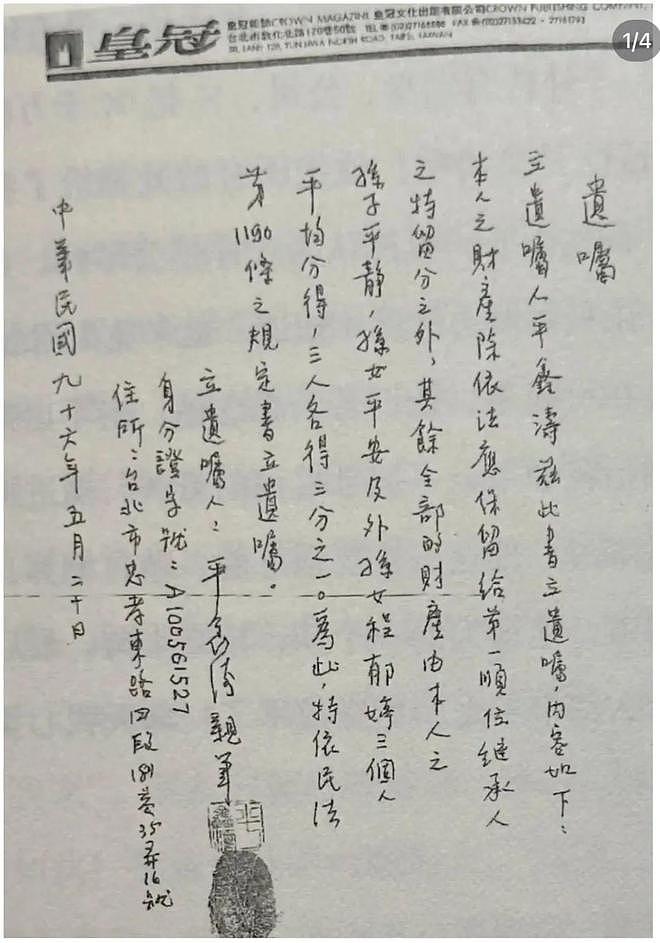 皇冠雜誌CROWN MAGAZINE 皇冠文化出版有限公司CROWN PUBLISHING COMPANY
台北市敦化北路120巷50號 電話(02)27168888 FAX
50, LANE 120, TUN HWA NORTH ROAD, TAIPEI, TAIWAN
1/4
遺囑
立遺囑人平鑫濤茲此書立遺囑,內容如下:
本人之財產除依法應保留給第一順位繼承人
之特留分之外,其餘全部的財產由本人之
孫子平靜,孫女平安及外孫女程郁婷三個人
平均分得,三人各得三分之一。爲此,特依民法
第1190條之規定書立遺囑。
立遺囑人:平鑫濤親筆
身分證字號:A100561527
住所:台北市忠孝東路四段181巷35弄16號
中華民國九十六年五月二十日